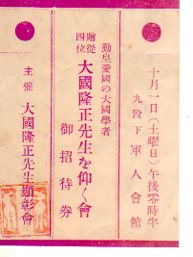 十月一日(土曜日)午後零時半
九段下軍人會館
勤皇愛國の大國學者
贈從四位
大國隆正先生を仰ぐ會
御招待券
主催 大國隆正先生顯彰會